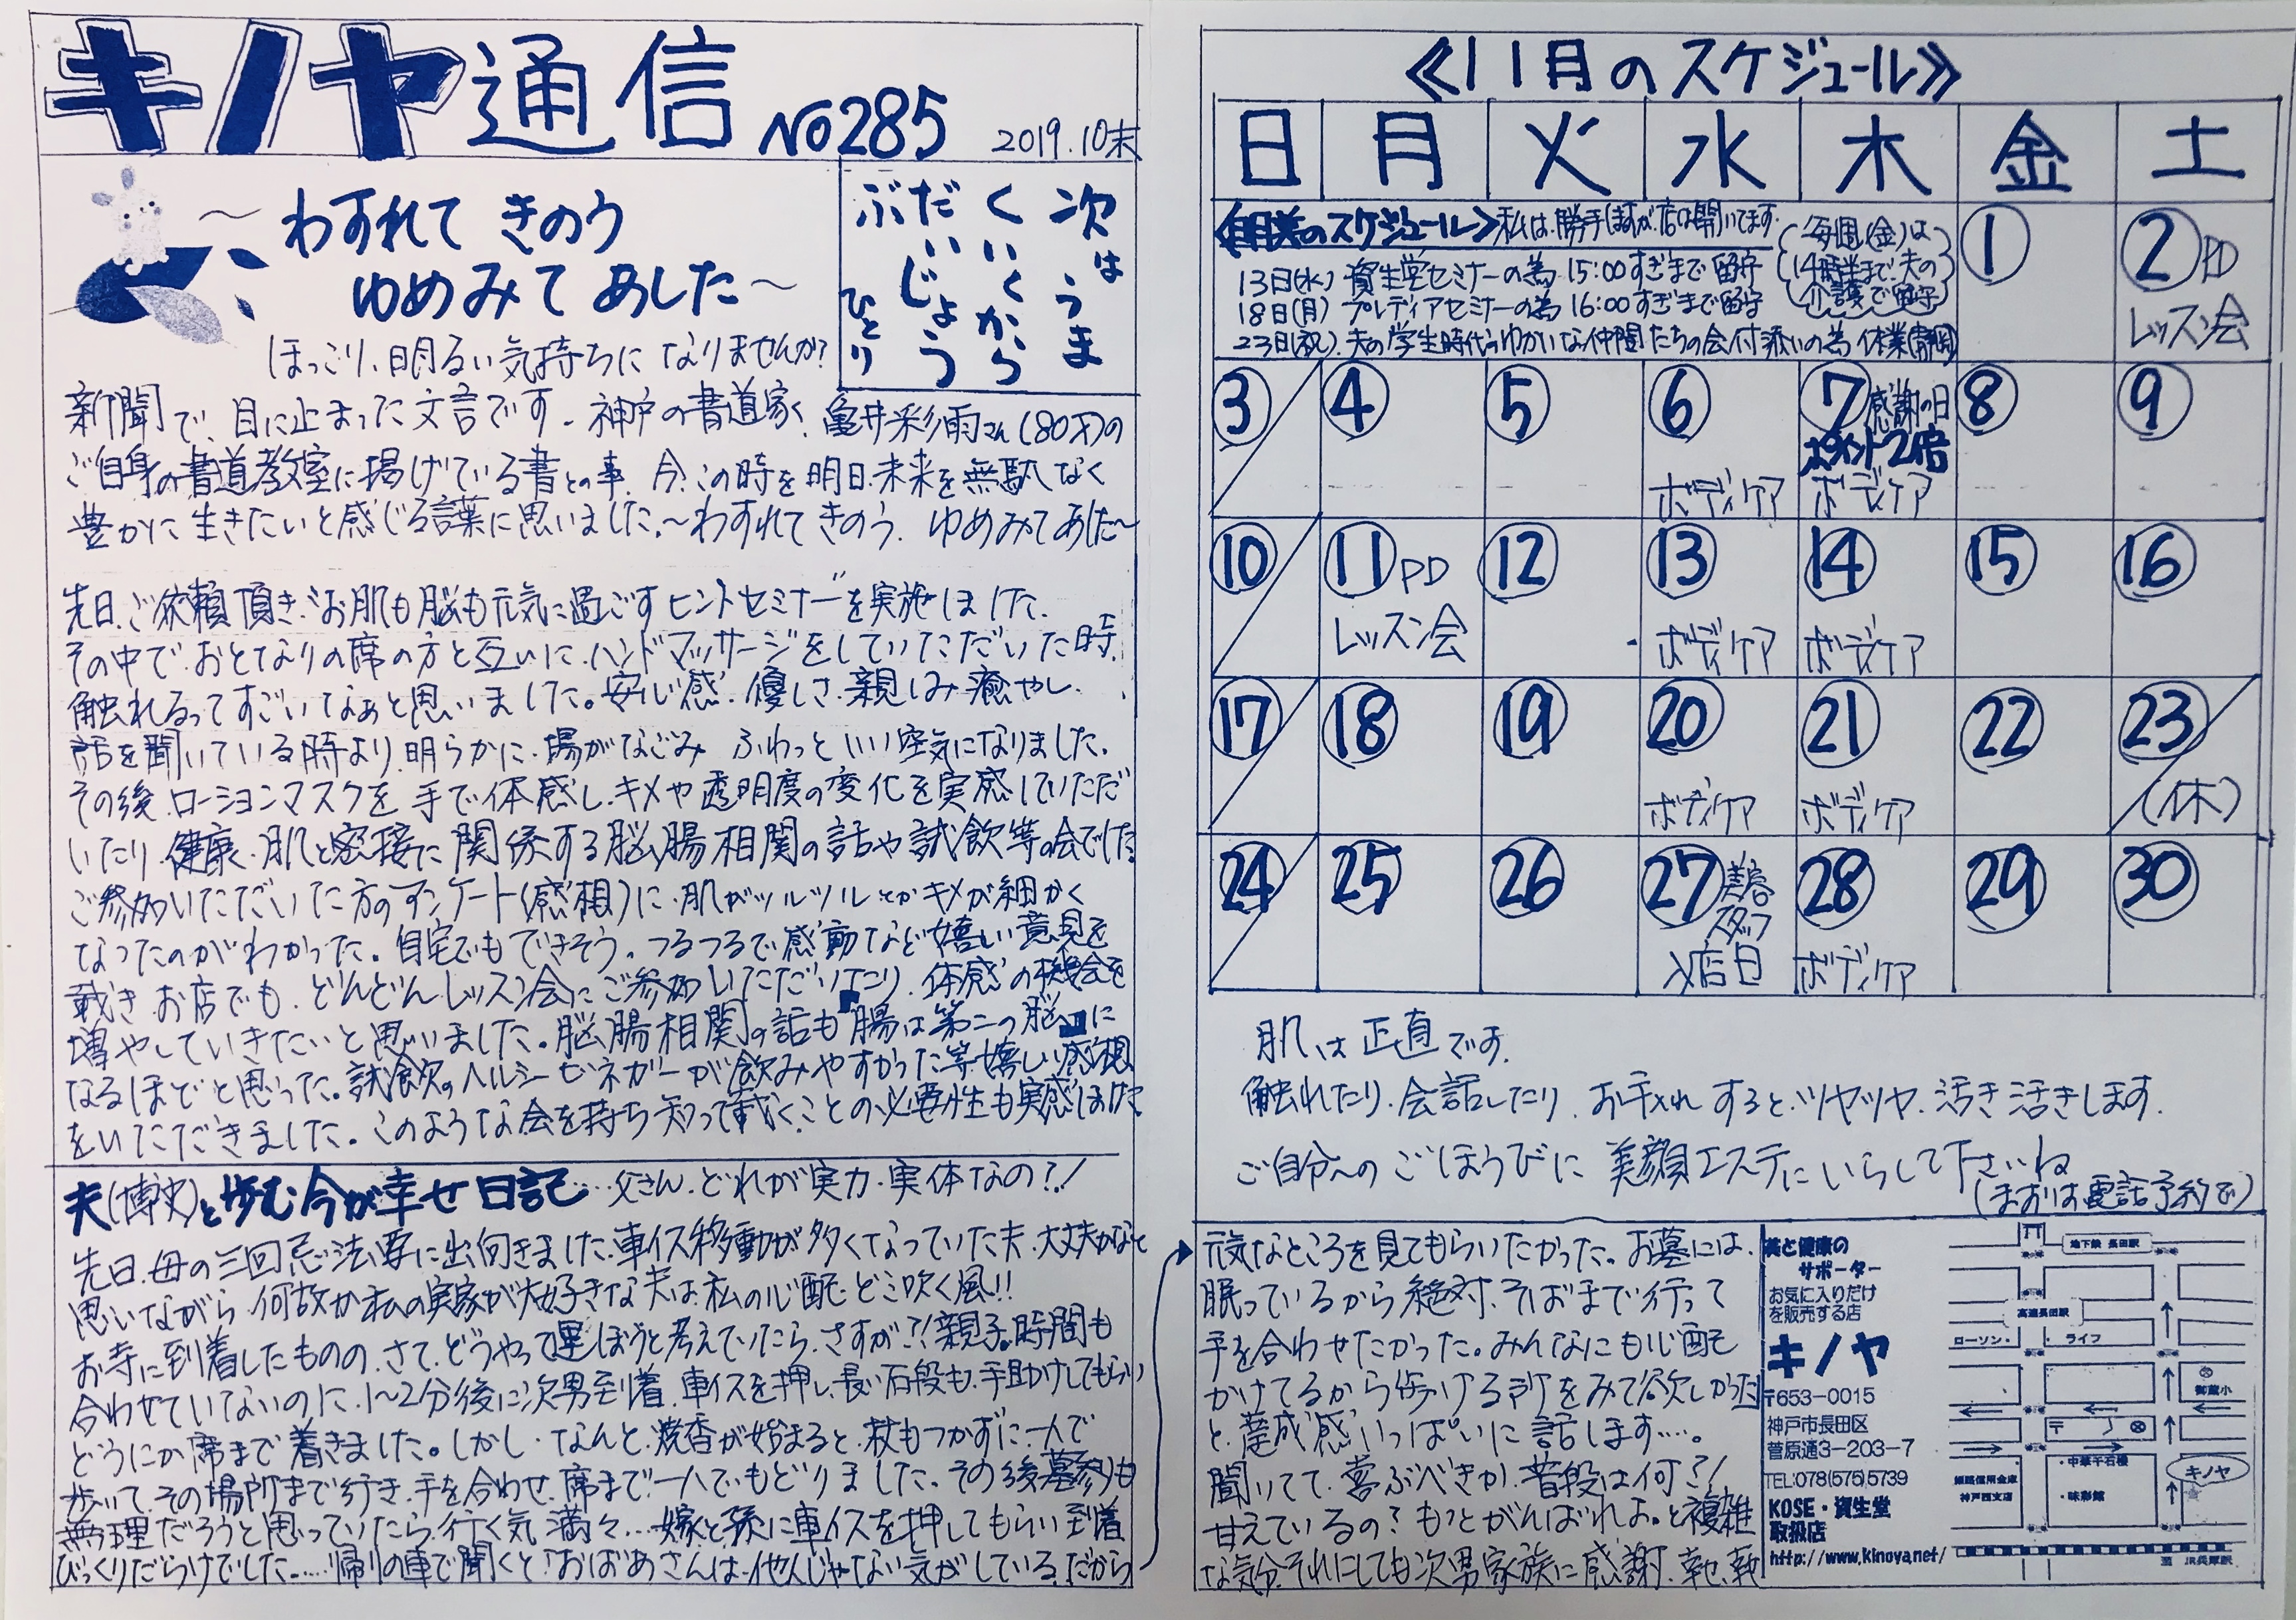 キノヤ通信 No285 2019.10末
～わすれて きのう
ゆめみて あした～
次は うま
くいくから
だいじょう
ぶ ひとり
ほっこり、明るい気持ちになりませんか?
新聞で、目に止まった文言です。神戸の書道家、亀井彩雨さん(80才)の
ご自身の書道教室に掲げている書との事。今、この時を明日、未来を無駄なく
豊かに生きたいと感じる言葉に思いました。～わすれてきのう、ゆめみてあした～
先日、ご依頼頂き、“お肌も脳も元気に過ごすヒントセミナー”を実施しました。
その中で、おとなりの席の方と互いに、ハンドマッサージをしていただいた時、
触れるってすごいなぁと思いました。安心感、優しさ、親しみ、癒やし、
話を聞いている時より、明らかに、場がなごみ ふわっと いい空気になりました。
その後、ローションマスクを 手で体感し、キメや透明度の変化を実感していただ
いたり、健康、肌と密接に関係する脳腸相関の話や試飲等の会でした
ご参加いただいた方のアンケート(感想)に、肌がツルツルとかキメが細かく
なったのがわかった。自宅でもできそう。つるつるで感動など嬉しい意見を
戴き お店でも、どんどんレッスン会にご参加いただいたり、体感の機会を
増やしていきたいと思いました。脳腸相関の話も腸は第二の脳に
なるほどと思った。試飲のヘルシービネガーが飲みやすかった等嬉しい感想
をいただきました。このような会を持ち 知って戴くことの必要性も実感しました
夫(博史)と歩む今が幸せ日記……父さん、どれが実力、実体なの?!
先日、母の三回忌法要に出向きました。車イス移動が多くなっていた夫、大丈夫かなと
思いながら、何故か私の実家が大好きな夫は、私の心配、どこ吹く風!!
お寺に到着したものの、さて、どうやって運ぼうと考えていたら、さすが?!親子。時間も
合わせていないのに、1～2分後に次男到着、車イスを押し、長い石段も、手助けしてもらい
どうにか席まで着きました。しかし、なんと、焼香が始まると、杖もつかずに、一人で
歩いて、その場所まで行き、手を合わせ、席まで一人でもどりました。その後墓参りも
無理だろうと思っていたら、行く気満々…嫁と孫に車イスを押してもらい到着
びっくりだらけでした……帰りの車で聞くと「おばあさんは、他人じゃない気がしている。だから
≪11月のスケジュール≫
日 月 火 水 木 金 土
のスケジュール>私は、勝手しますが、店は開いてます。
13日(水) 資生堂セミナーの為 15:00すぎまで留守
18日(月) プレディアセミナーの為 16:00すぎまで留守
23日(祝) 夫の学生時代のゆかいな仲間たちの会付添いの為 休業(静岡)
毎週(金)は
14時半まで、夫の
介護で留守
① ②PD
レッスン会
③ ④ ⑤ ⑥ ⑦感謝の日 ⑧ ⑨
ポイント2倍
ボディケア ボディケア
⑩ ⑪PD ⑫ ⑬ ⑭ ⑮ ⑯
レッスン会 ボディケア ボディケア
⑰ ⑱ ⑲ ⑳ ㉑ ㉒ ㉓
ボディケア ボディケア (休)
㉔ ㉕ ㉖ ㉗美容 ㉘ ㉙ ㉚
スタッフ
入店日 ボディケア
肌は正直です。
触れたり、会話したり、お手入れすると、ツヤツヤ、活き活きします。
ご自分へのごほうびに 美顔エステにいらして下さいね
(まずは電話予約で)
元気なところを見てもらいたかった。お墓には、
眠っているから絶対、そばまで行って
手を合わせたかった。みんなにも心配
かけてるから歩ける所をみて欲しかった
と、達成感いっぱいに話します……。
聞いてて、喜ぶべきか、普段は何?!
甘えているの?もっとがんばれよ。と複雑
な気分。それにしても次男家族に感謝、
美と健康の
サポーター
お気に入りだけ
を販売する店
キノヤ
〒653-0015
神戸市長田区
菅原通3-203-7
TEL:078(575)5739
KOSE・資生堂
取扱店
http://www.kinoya.net/
地下鉄 長田駅
高速長田駅
ローソン・ ・ライフ
御蔵小
〒
・中華千石楼
キノヤ
姫路信用金庫
神戸西支店
・味彩館
至 JR兵庫駅